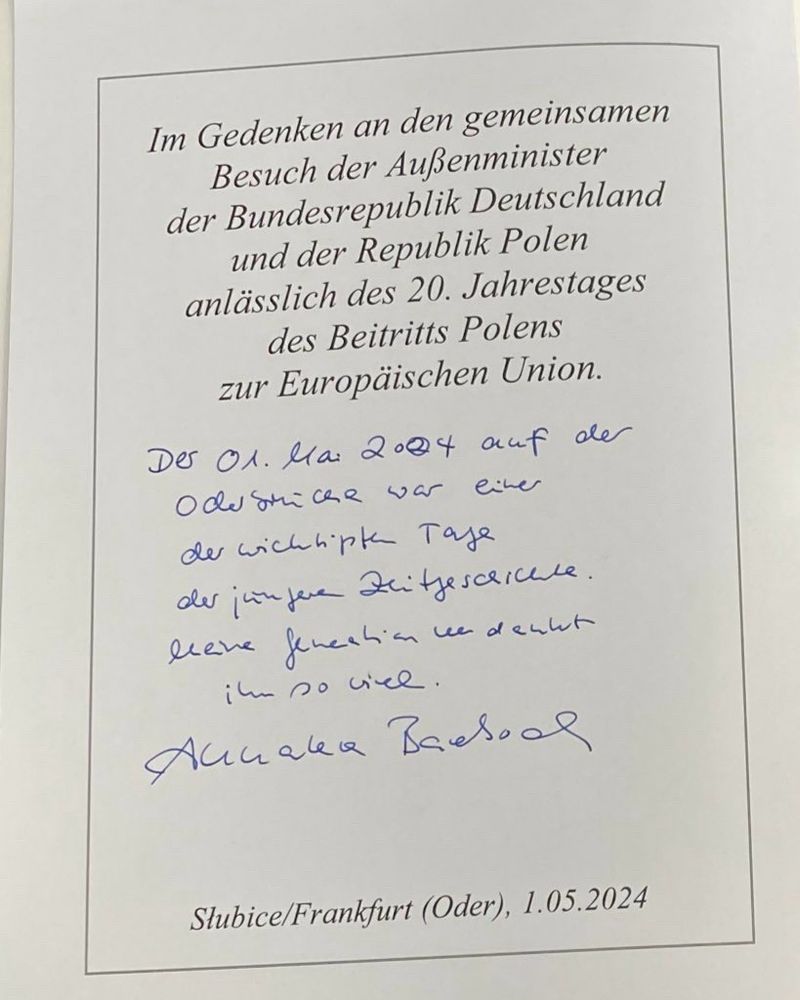 Im Gedenken an den gemeinsamen
Besuch der Außenminister
der Bundesrepublik Deutschland
und der Republik Polen
anlässlich des 20. Jahrestages
des Beitritts Polens
zur Europäischen Union.
Der 01. Mai 2004 auf der
Oderbrücke war einer
der wichtigsten Tage
der jüngeren Zeitgeschichte.
Meine Generation verdankt
ihm so viel.
Annalena Baerbock
Słubice/Frankfurt (Oder), 1.05.2024